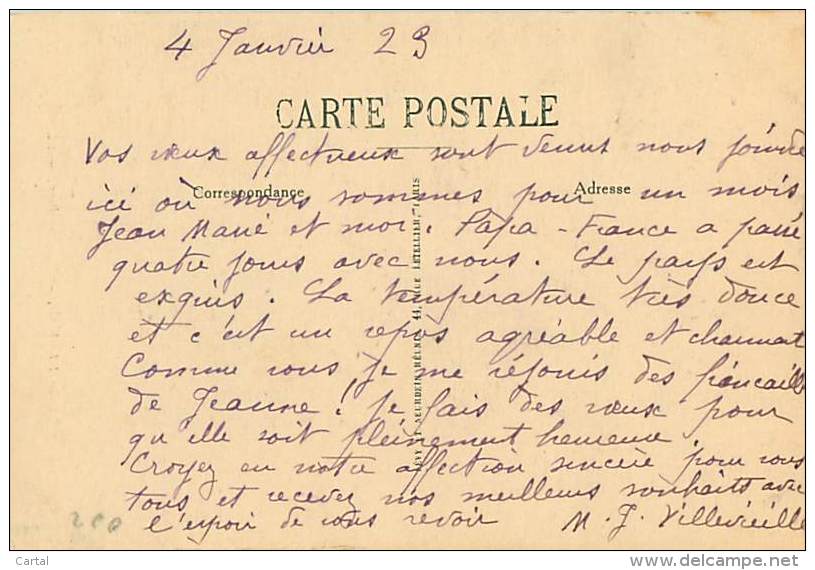 4 Janvier 23
CARTE POSTALE
Vos vœux affectueux sont venus nous joindre
Correspondance
Adresse
ici où nous sommes pour un mois
Jean Marie et moi. Papa - France a passé
quatre jours avec nous. Le pays est
exquis. La température très douce
et c'est un repos agréable et charmant
Comme vous je me réjouis des fiançailles
de Jeanne! Je fais des vœux pour
qu'elle soit pleinement heureuse
Croyez en notre affection sincère pour vous
tous et recevez nos meilleurs souhaits avec
l'espoir de vous revoir M. J. Villevieille
LEVY ET NEURDEIN RÉUNIS, 44, RUE LETELLIER, PARIS
200
Cartal
www.delcampe.net